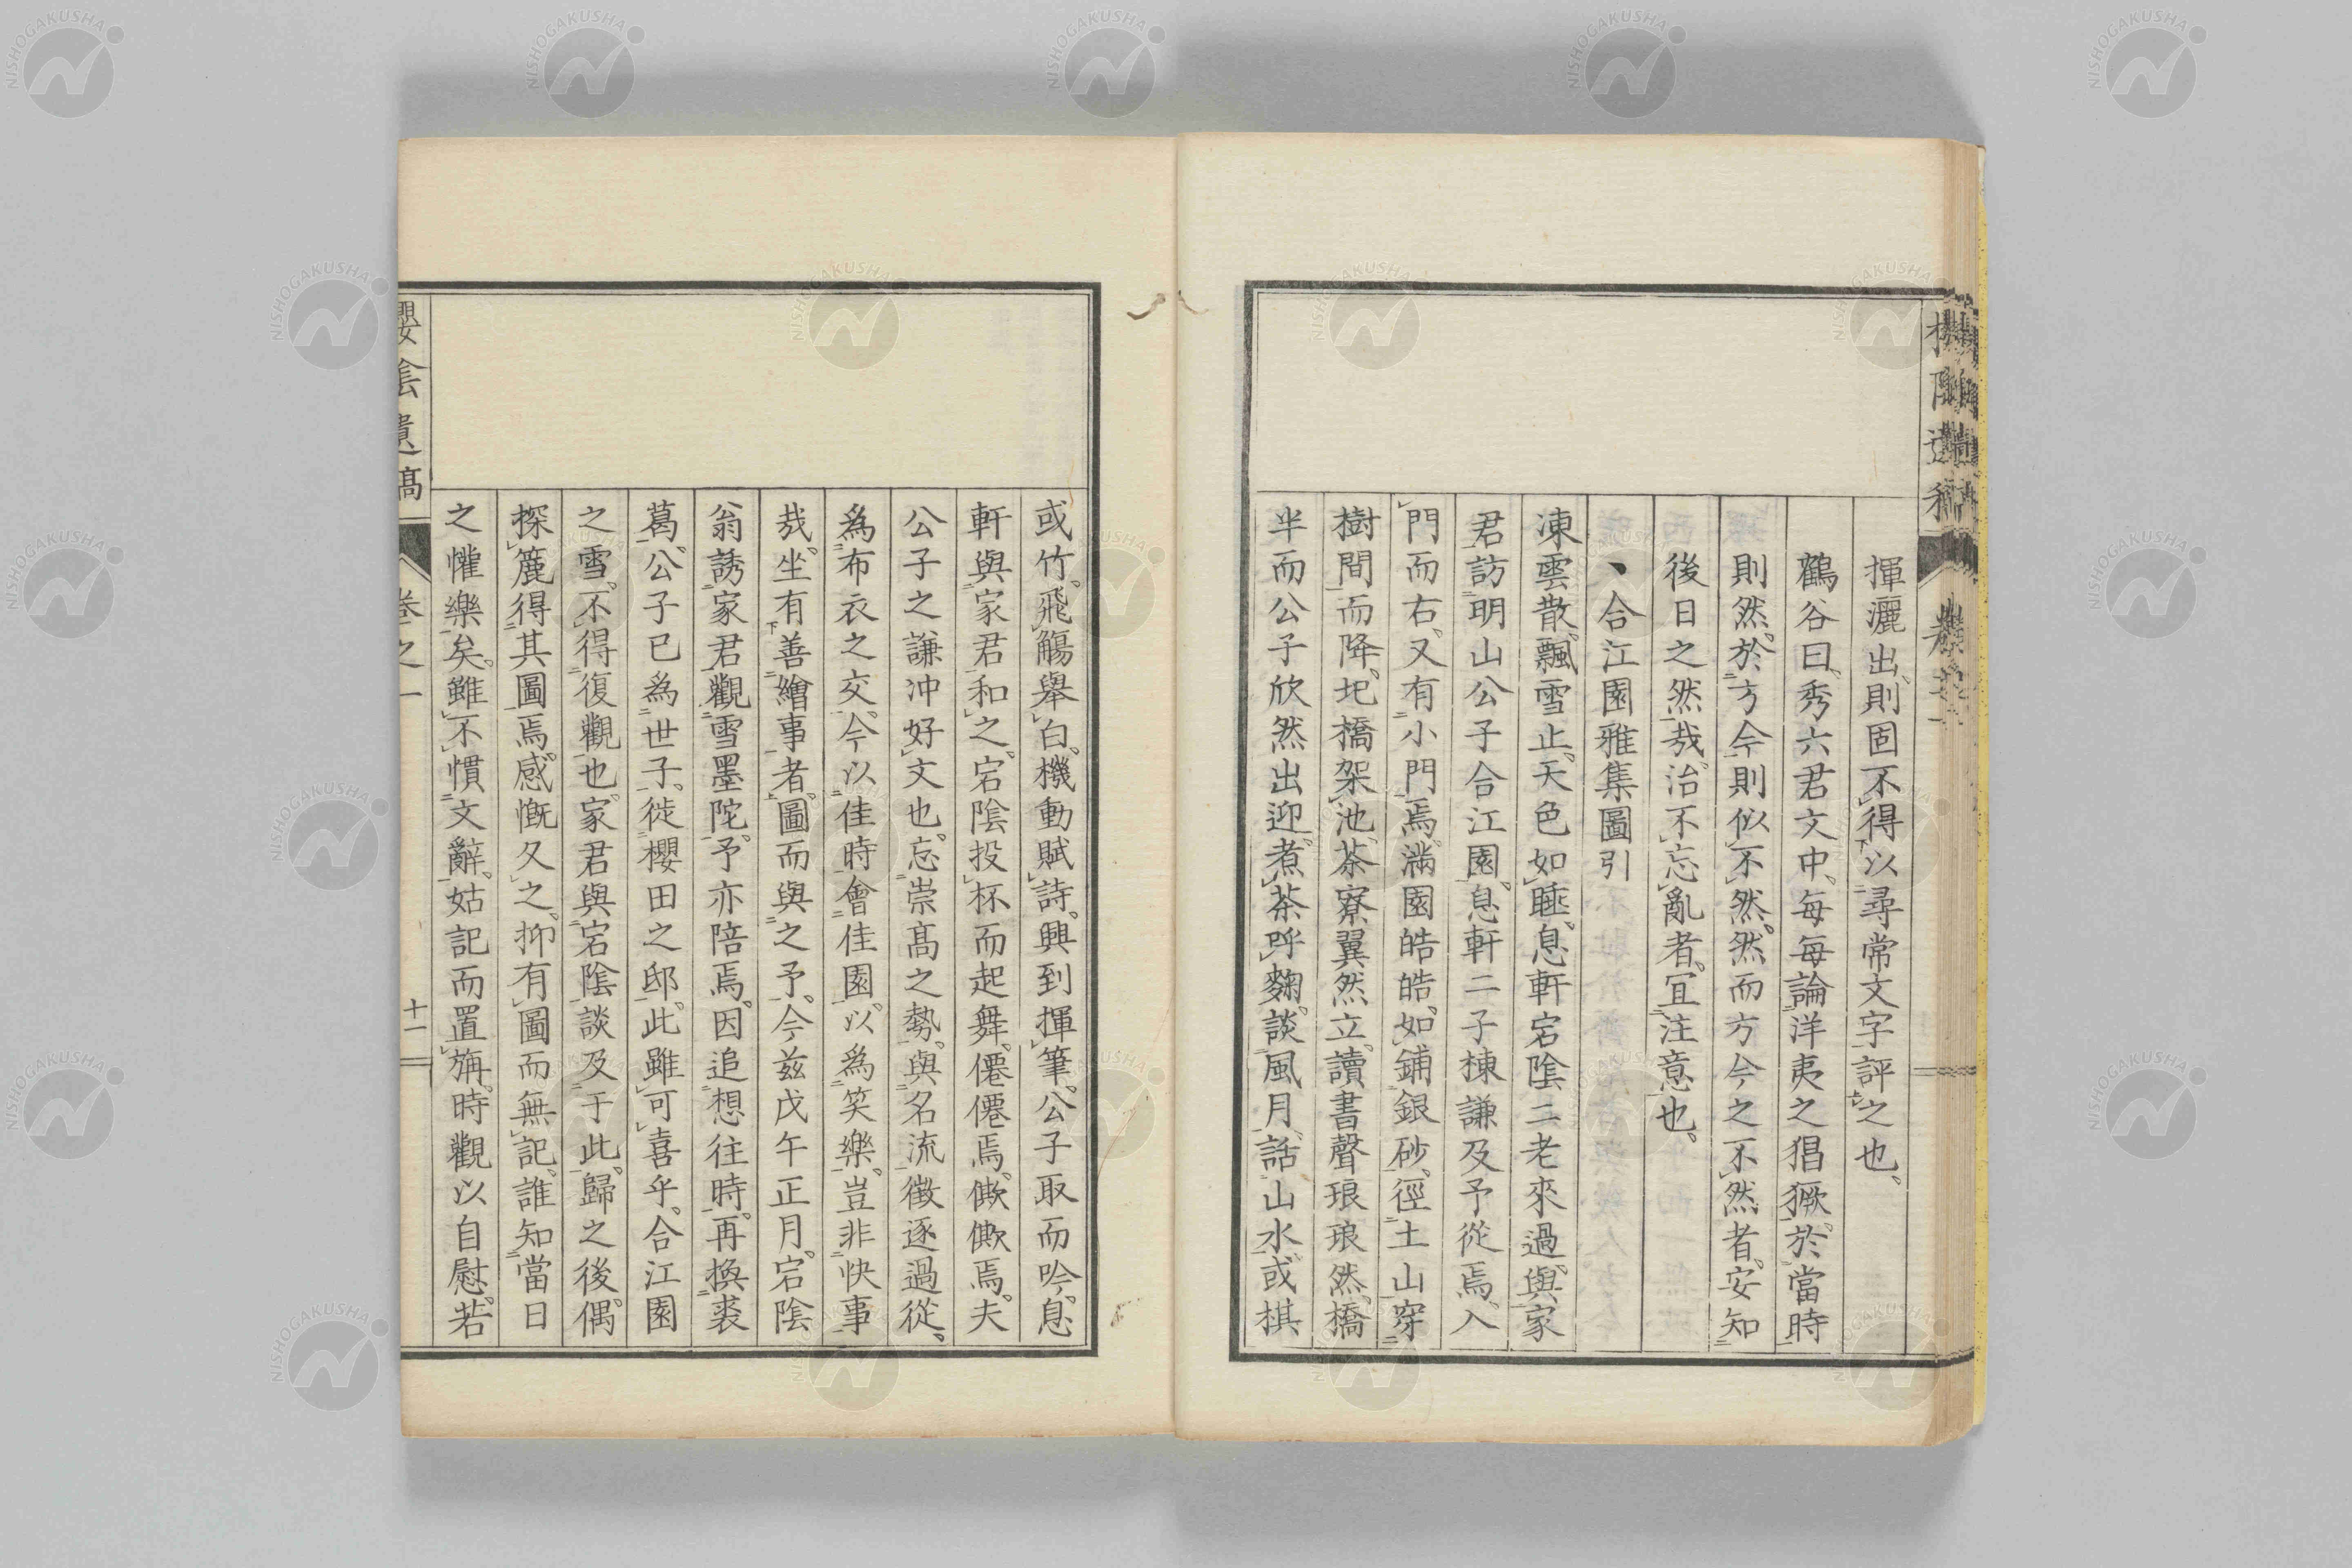 揮灑出、則固不得以尋常文字評之也、
鶴谷曰、秀六君文中、每每論洋夷之猖獗。於當時
則然。於方今則似不然。然而方今之不然者、安知
後日之然哉。治不忘亂者。宜注意也、
丶合江園雅集圖引
凍雲散。飄雪止。天色如睡。息軒宕陰二老來過。與家
君訪明山公子合江園。息軒二子棟謙及予從焉。入
門而右、又有小門焉。滿園皓皓。如鋪銀砂。徑土山穿
樹間而降。圯橋架池。茶寮翼然立。讀書聲琅琅然。橋
半而公子欣然出迎。煮茶呼麴。談風月。話山水。或棋
或竹。飛觴舉白。機動賦詩。興到揮筆。公子取而吟。息
軒與家君和之。宕陰投杯而起舞。僊僊焉。僛僛焉。夫
公子之謙冲好文也。忘崇髙之勢。與名流徵逐過從。
為布衣之交。今以佳時會佳園。以為笑樂。豈非快事
哉。坐有善繪事者。圖而與之予。今玆戊午正月。宕陰
翁誘家君觀雪墨陀。予亦陪焉。因追想往時。再換裘
葛。公子已為世子。徙櫻田之邸。此雖可喜乎。合江園
之雪。不得復觀也。家君與宕陰談及于此。歸之後。偶
探簏得其圖焉。感慨久之。抑有圖而無記。誰知當日
之懽樂矣。雖不慣文辭。姑記而置旃。時觀以自慰。若
櫻陰遺稿
卷之一
十一